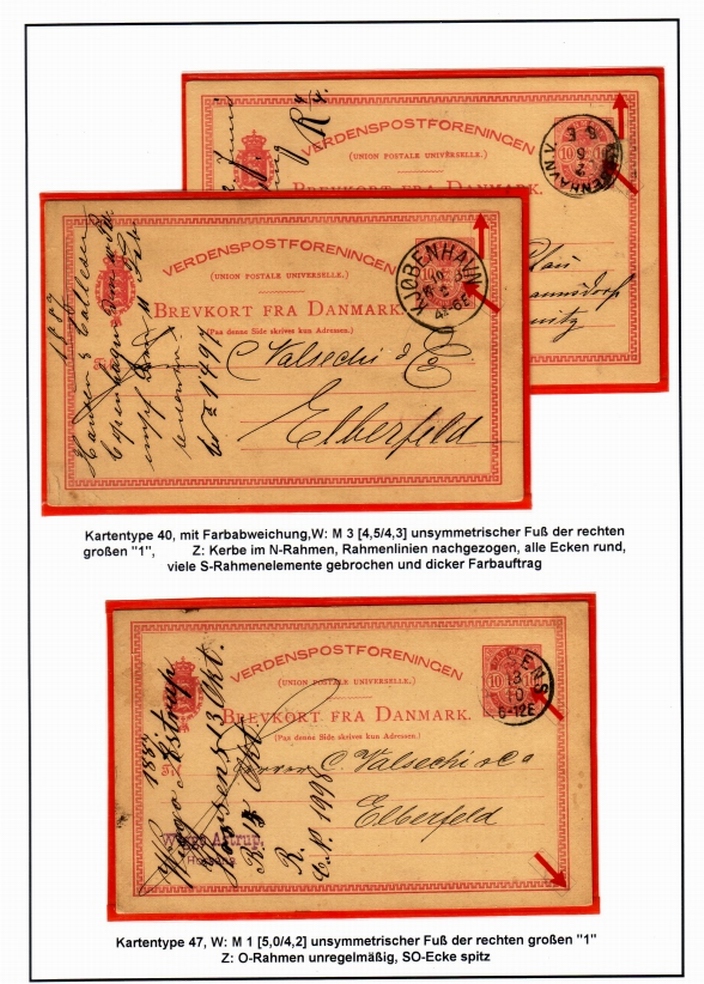 R 4/4.
VERDENSPOSTFORENINGEN
(UNION POSTALE UNIVERSELLE.)
BREVKORT FRA DANMARK.
10 10
KJØBENHAVN.V.
2 6
8 E
VERDENSPOSTFORENINGEN
(UNION POSTALE UNIVERSELLE.)
BREVKORT FRA DANMARK.
(Paa denne Side skrives kun Adressen.)
10
KJØBENHAVN
4-6E
1887
Hansen & Callesen
Copenhagen
empf
No 1497
C Valsechi & C
Elberfeld
Kartentype 40, mit Farbabweichung,W: M 3 [4,5/4,3] unsymmetrischer Fuß der rechten
großen "1", Z: Kerbe im N-Rahmen, Rahmenlinien nachgezogen, alle Ecken rund,
viele S-Rahmenelemente gebrochen und dicker Farbauftrag
VERDENSPOSTFORENINGEN
(UNION POSTALE UNIVERSELLE.)
BREVKORT FRA DANMARK.
(Paa denne Side skrives kun Adressen.)
Til
10 10
13
10
6-12E
1887
Viggo Astrup
Horsens 13 Okt.
R. 15 Okt.
R.
C.N. 1998
Viggo Astrup,
Horsens
Herrer C. Valsechi & Co
Elberfeld
Kartentype 47, W: M 1 [5,0/4,2] unsymmetrischer Fuß der rechten großen "1"
Z: O-Rahmen unregelmäßig, SO-Ecke spitz